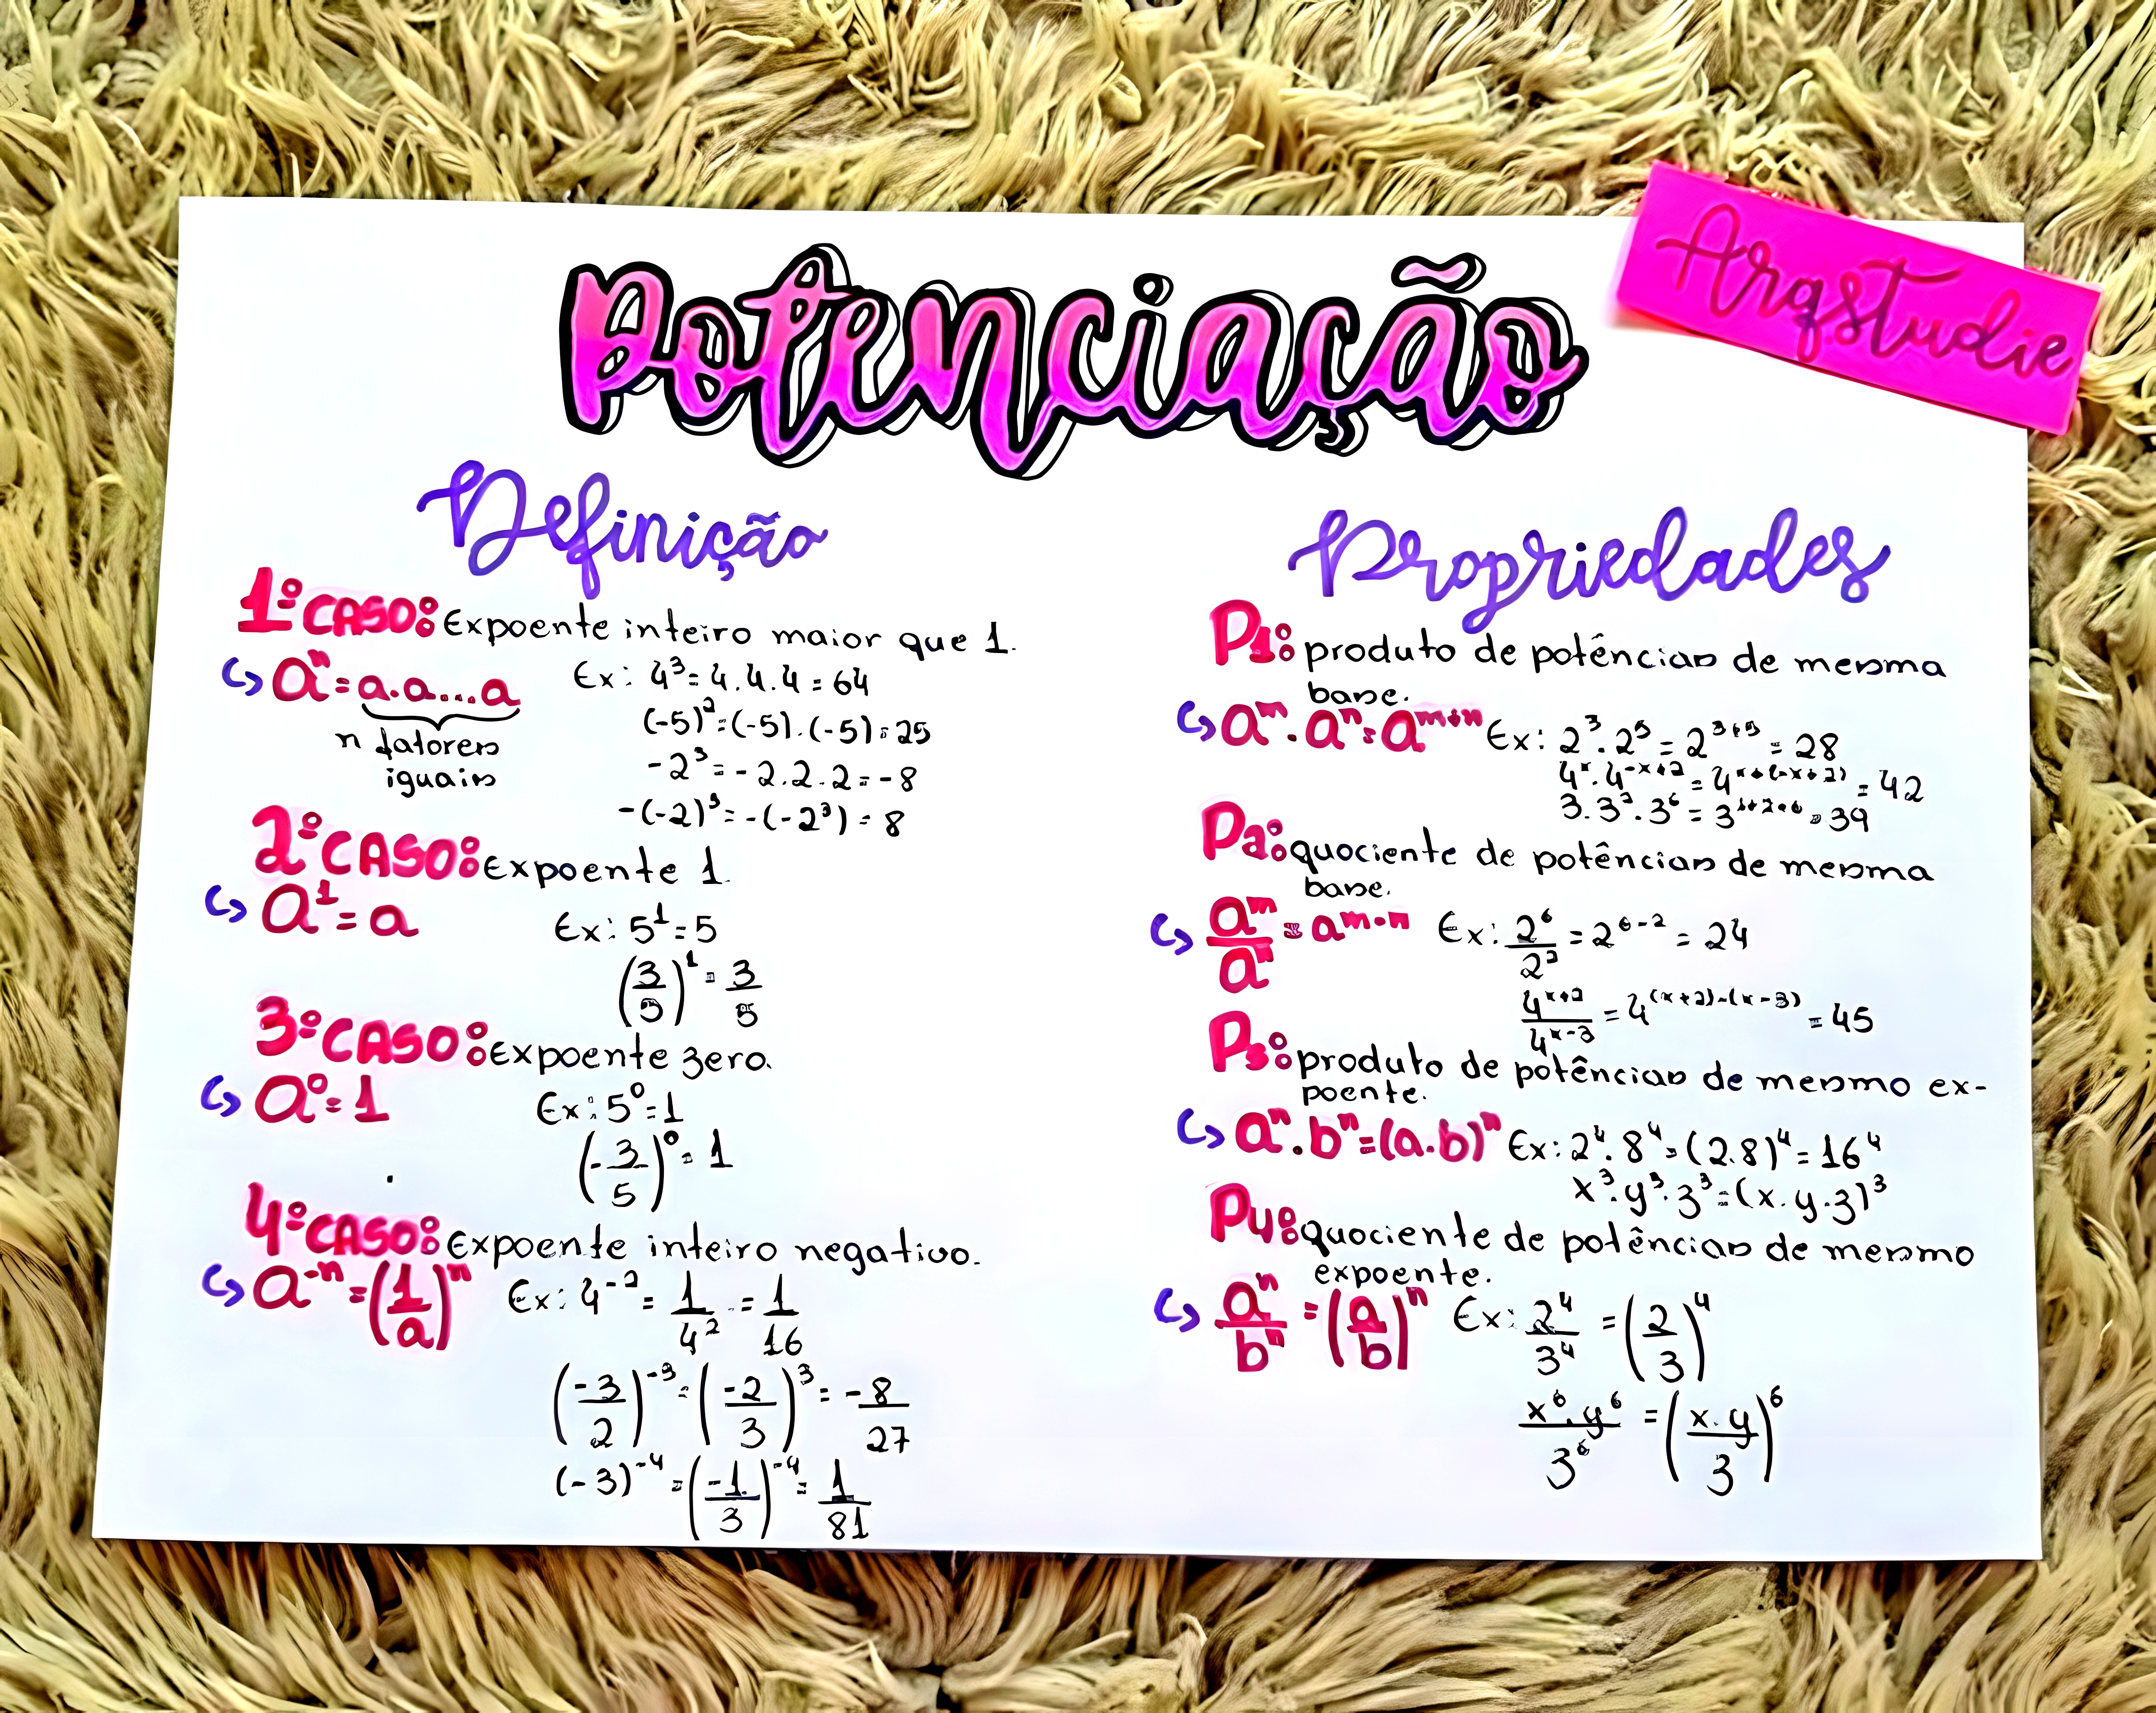 Potenciação
Arqstudie
Definição
1º CASO: Expoente inteiro maior que 1.
aⁿ = a.a...a
n fatores
iguais
Ex: 4³ = 4.4.4 = 64
(-5)² = (-5).(-5) = 25
-2³ = -2.2.2 = -8
-(-2)³ = -(-2³) = 8
2º CASO: Expoente 1.
a¹ = a
Ex: 5¹ = 5
(3/5)¹ = 3/5
3º CASO: Expoente zero.
a⁰ = 1
Ex: 5⁰ = 1
(-3/5)⁰ = 1
4º CASO: Expoente inteiro negativo.
a⁻ⁿ = (1/a)ⁿ
Ex: 4⁻² = 1/4² = 1/16
(-3/2)⁻³ = (-2/3)³ = -8/27
(-3)⁻⁴ = (-1/3)⁻⁴ = 1/81
Propriedades
P1: produto de potências de mesma
base.
aᵐ.aⁿ = aᵐ⁺ⁿ Ex: 2³.2⁵ = 2³⁺⁵ = 28
4ˣ.4⁻ˣ⁺² = 4ˣ⁺⁽⁻ˣ⁺²⁾ = 42
3.3².3⁶ = 3¹⁺²⁺⁶ = 39
P2: quociente de potências de mesma
base.
aᵐ/aⁿ = aᵐ⁻ⁿ Ex: 2⁶/2² = 2⁶⁻² = 24
4ˣ⁺²/4ˣ⁻³ = 4⁽ˣ⁺²⁾⁻⁽ˣ⁻³⁾ = 45
P3: produto de potências de mesmo ex-
poente.
aⁿ.bⁿ = (a.b)ⁿ Ex: 2⁴.8⁴ = (2.8)⁴ = 16⁴
x³.y³.z³ = (x.y.z)³
P4: quociente de potências de mesmo
expoente.
aⁿ/bⁿ = (a/b)ⁿ Ex: 2⁴/3⁴ = (2/3)⁴
x⁶.y⁶/3⁶ = (x.y/3)⁶